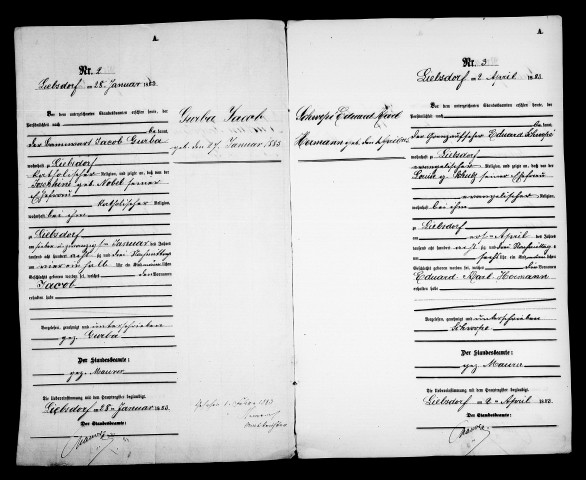 A.
Nr. 2
Gielsdorf am 28. Januar 1883.
Vor dem unterzeichneten Standesbeamten erschien heute, der
Persönlichkeit nach
bekannt,
Jacob Gurba
wohnhaft zu Gielsdorf
katholischer Religion, und zeigte an, daß von der
Josephine geb. Nobel seiner
Ehefrau
katholischer Religion,
wohnhaft bei ihm
zu Gielsdorf
am sieben u. zwanzigsten Januar des Jahres
tausend acht hundert acht zig und drei Nachmittags
um vier ein halb Uhr ein Kind männlichen
Geschlechts geboren worden sei, welches den Vornamen
Jacob
erhalten habe
Vorgelesen, genehmigt und unterschrieben
gez. Gurba
Der Standesbeamte:
gez. Maurer
Die Uebereinstimmung mit dem Hauptregister beglaubigt.
Gielsdorf am 28. Januar 1883.
Der Standesbeamte:
Gurba Jacob
geb. den 27. Januar 1883
A.
Nr. 3
Gielsdorf am 2. April 1883.
Vor dem unterzeichneten Standesbeamten erschien heute, der
Persönlichkeit nach
bekannt,
der Grenzaufseher Eduard Schwope
wohnhaft zu Gielsdorf
evangelischer Religion, und zeigte an, daß von der
Louise g. Schulz seiner Ehefrau
evangelischer Religion,
wohnhaft bei ihm
zu Gielsdorf
am ersten April des Jahres
tausend acht hundert acht zig und drei Vormittags
um sechs Uhr ein Kind männlichen
Geschlechts geboren worden sei, welches die Vornamen
Eduard Karl Hermann
erhalten habe
Vorgelesen, genehmigt und unterschrieben
Schwope
Der Standesbeamte:
gez. Maurer
Die Uebereinstimmung mit dem Hauptregister beglaubigt.
Gielsdorf am 2. April 1883.
Der Standesbeamte:
Schwope Eduard Karl
Hermann geb. den